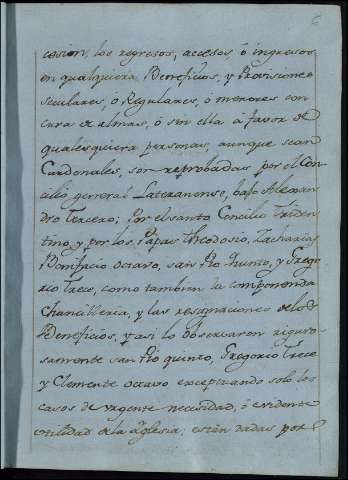 cesion, los regresos, accesos, ó ingresos
en qualquiera Beneficios, y Provisiones
seculares, ó Regulares, ó menores con
cura de almas, ó sin ella á favor de
qualesquiera personas, aunque sean
Cardenales, son reprobadas por el Con
cilio general Lateranense, bajo Alexan
dro Tercero; Por el santo Concilio Triden
tino, y por los Papas Theodosio, Zacharias
Bonifacio octavo, san Pio Quinto, y Grego
rio Trece, como tambien la componenda
Chancilleria, y las resignaciones de los
Beneficios, y asi lo observaron riguro
samente san Pio quinto, Gregorio Trece
y Clemente octavo exceptuando solo los
casos de urgente necesidad, ó evidente
utilidad de la Yglesia; estàn dadas por